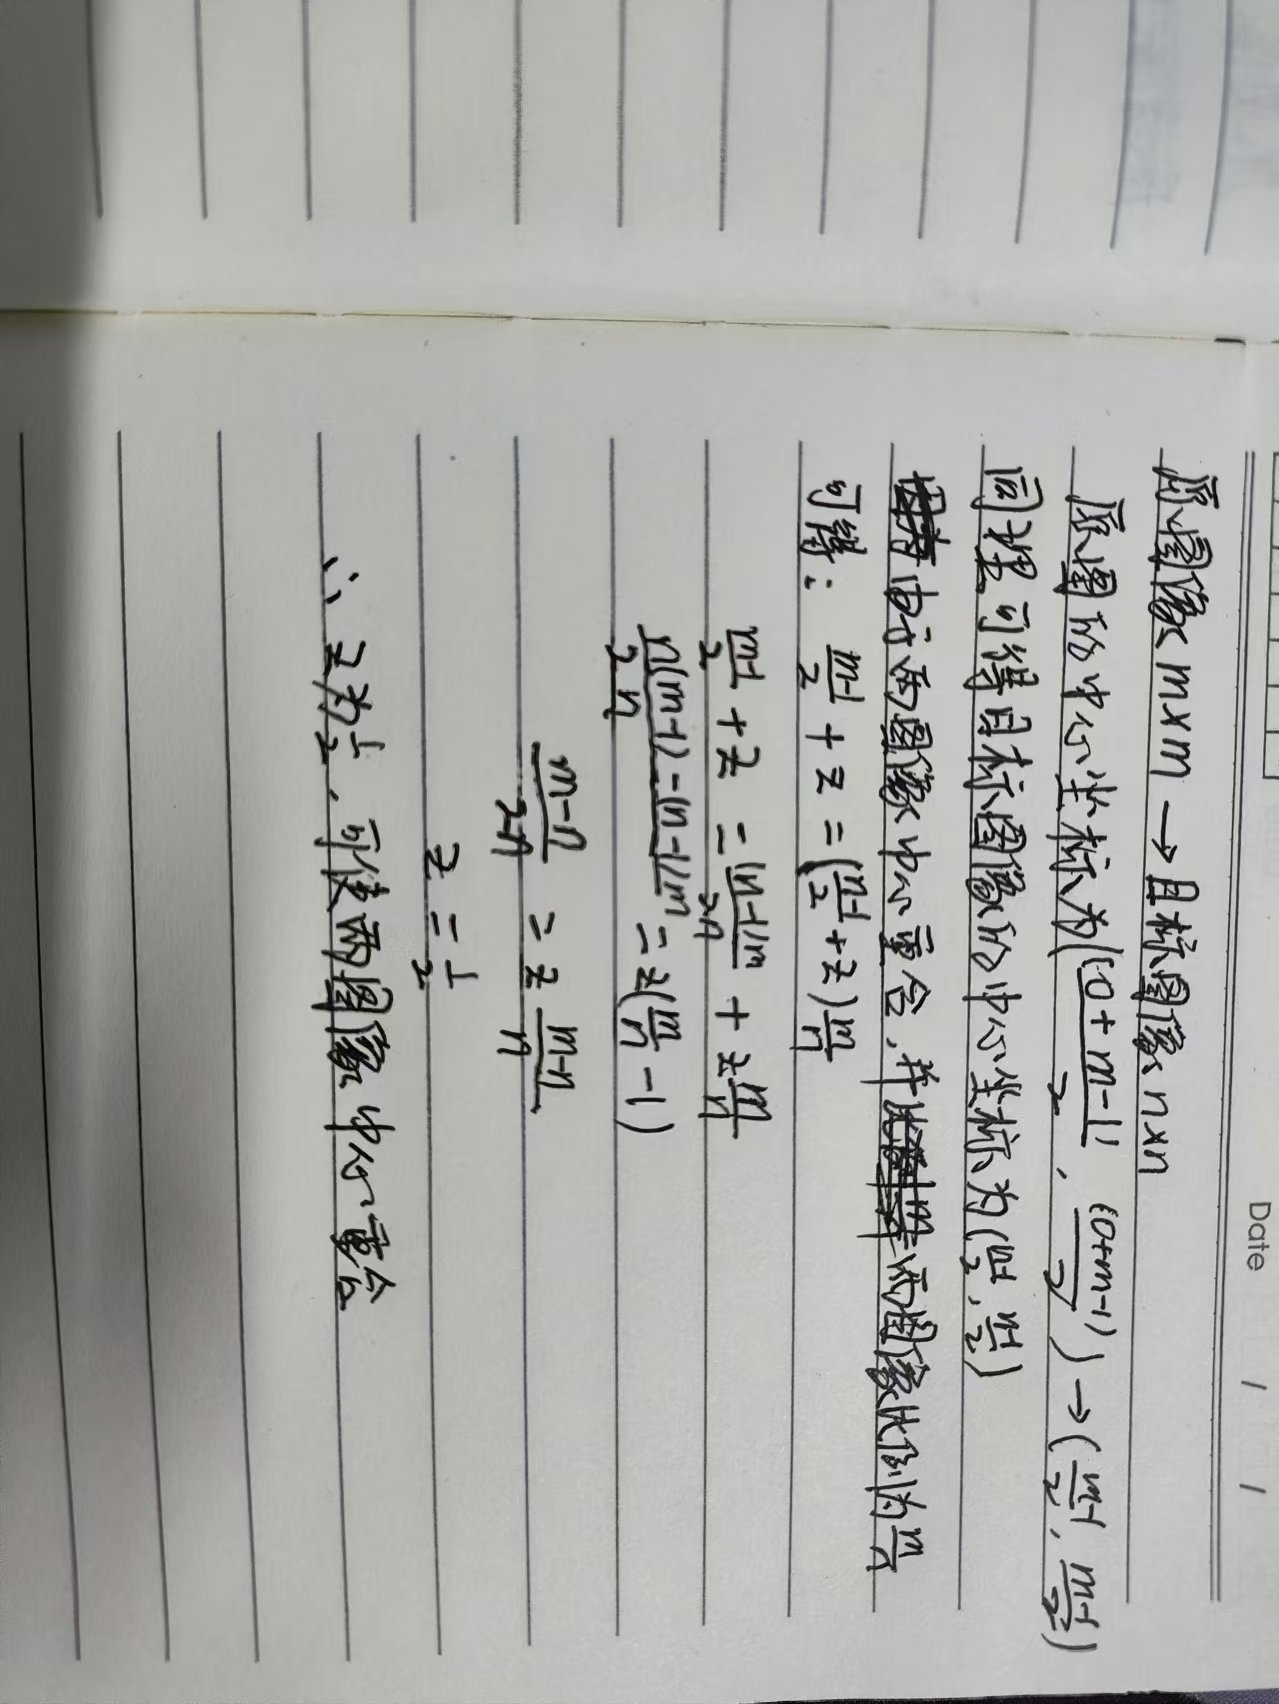 Date / /
原图像 m×m → 目标图像 n×n
原图的中心坐标为((0+m-1)/2, (0+m-1)/2) → (m-1/2, m-1/2)
同理可得目标图像的中心坐标为(n-1/2, n-1/2)
由于两图像中心重合, 并 两图像比例为 m/n
可得: m-1/2 + z = (n-1/2 + z) m/n
m-1/2 + z = (n-1)m/2n + z m/n
n(m-1)-(n-1)m/2n = z(m/n - 1)
m-n/2n = z m-n/n
z = 1/2
∴ z为1/2, 可使两图像中心重合